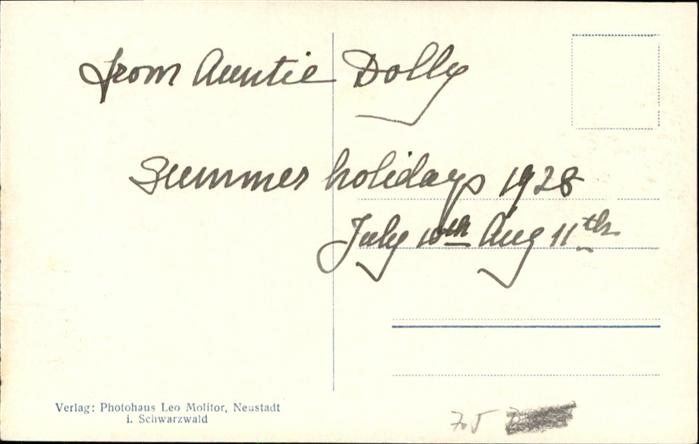 from Auntie Dolly
Summer holidays 1928
July 10th Aug 11th
Verlag: Photohaus Leo Molitor, Neustadt
i. Schwarzwald